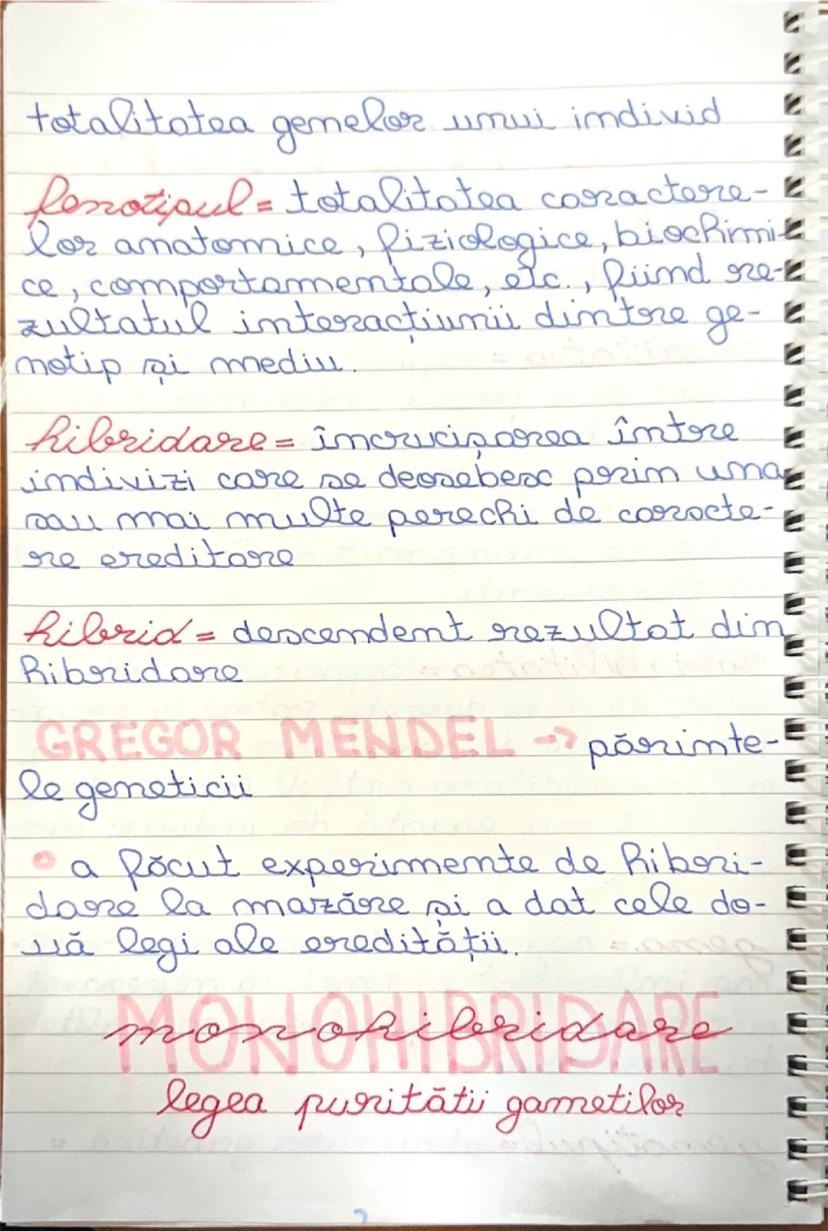 totalitatea genelor unui individ
fenotipul = totalitatea caractere-
lor anatomice, fiziologice, biochimi-
ce, comportamentale, etc., fiind re-
zultatul interacțiunii dintre ge-
notip și mediu.
hibridare = încrucișarea între
indivizi care se deosebesc prin una
sau mai multe perechi de caracte-
re ereditare
hibrid = descendent rezultat din
hibridare
GREGOR MENDEL -> părinte-
le geneticii
a făcut experimente de hibri-
dare la mazăre și a dat cele do-
uă legi ale eredității.
MONOHIBRIDARE
monohibridare
legea purității gameților